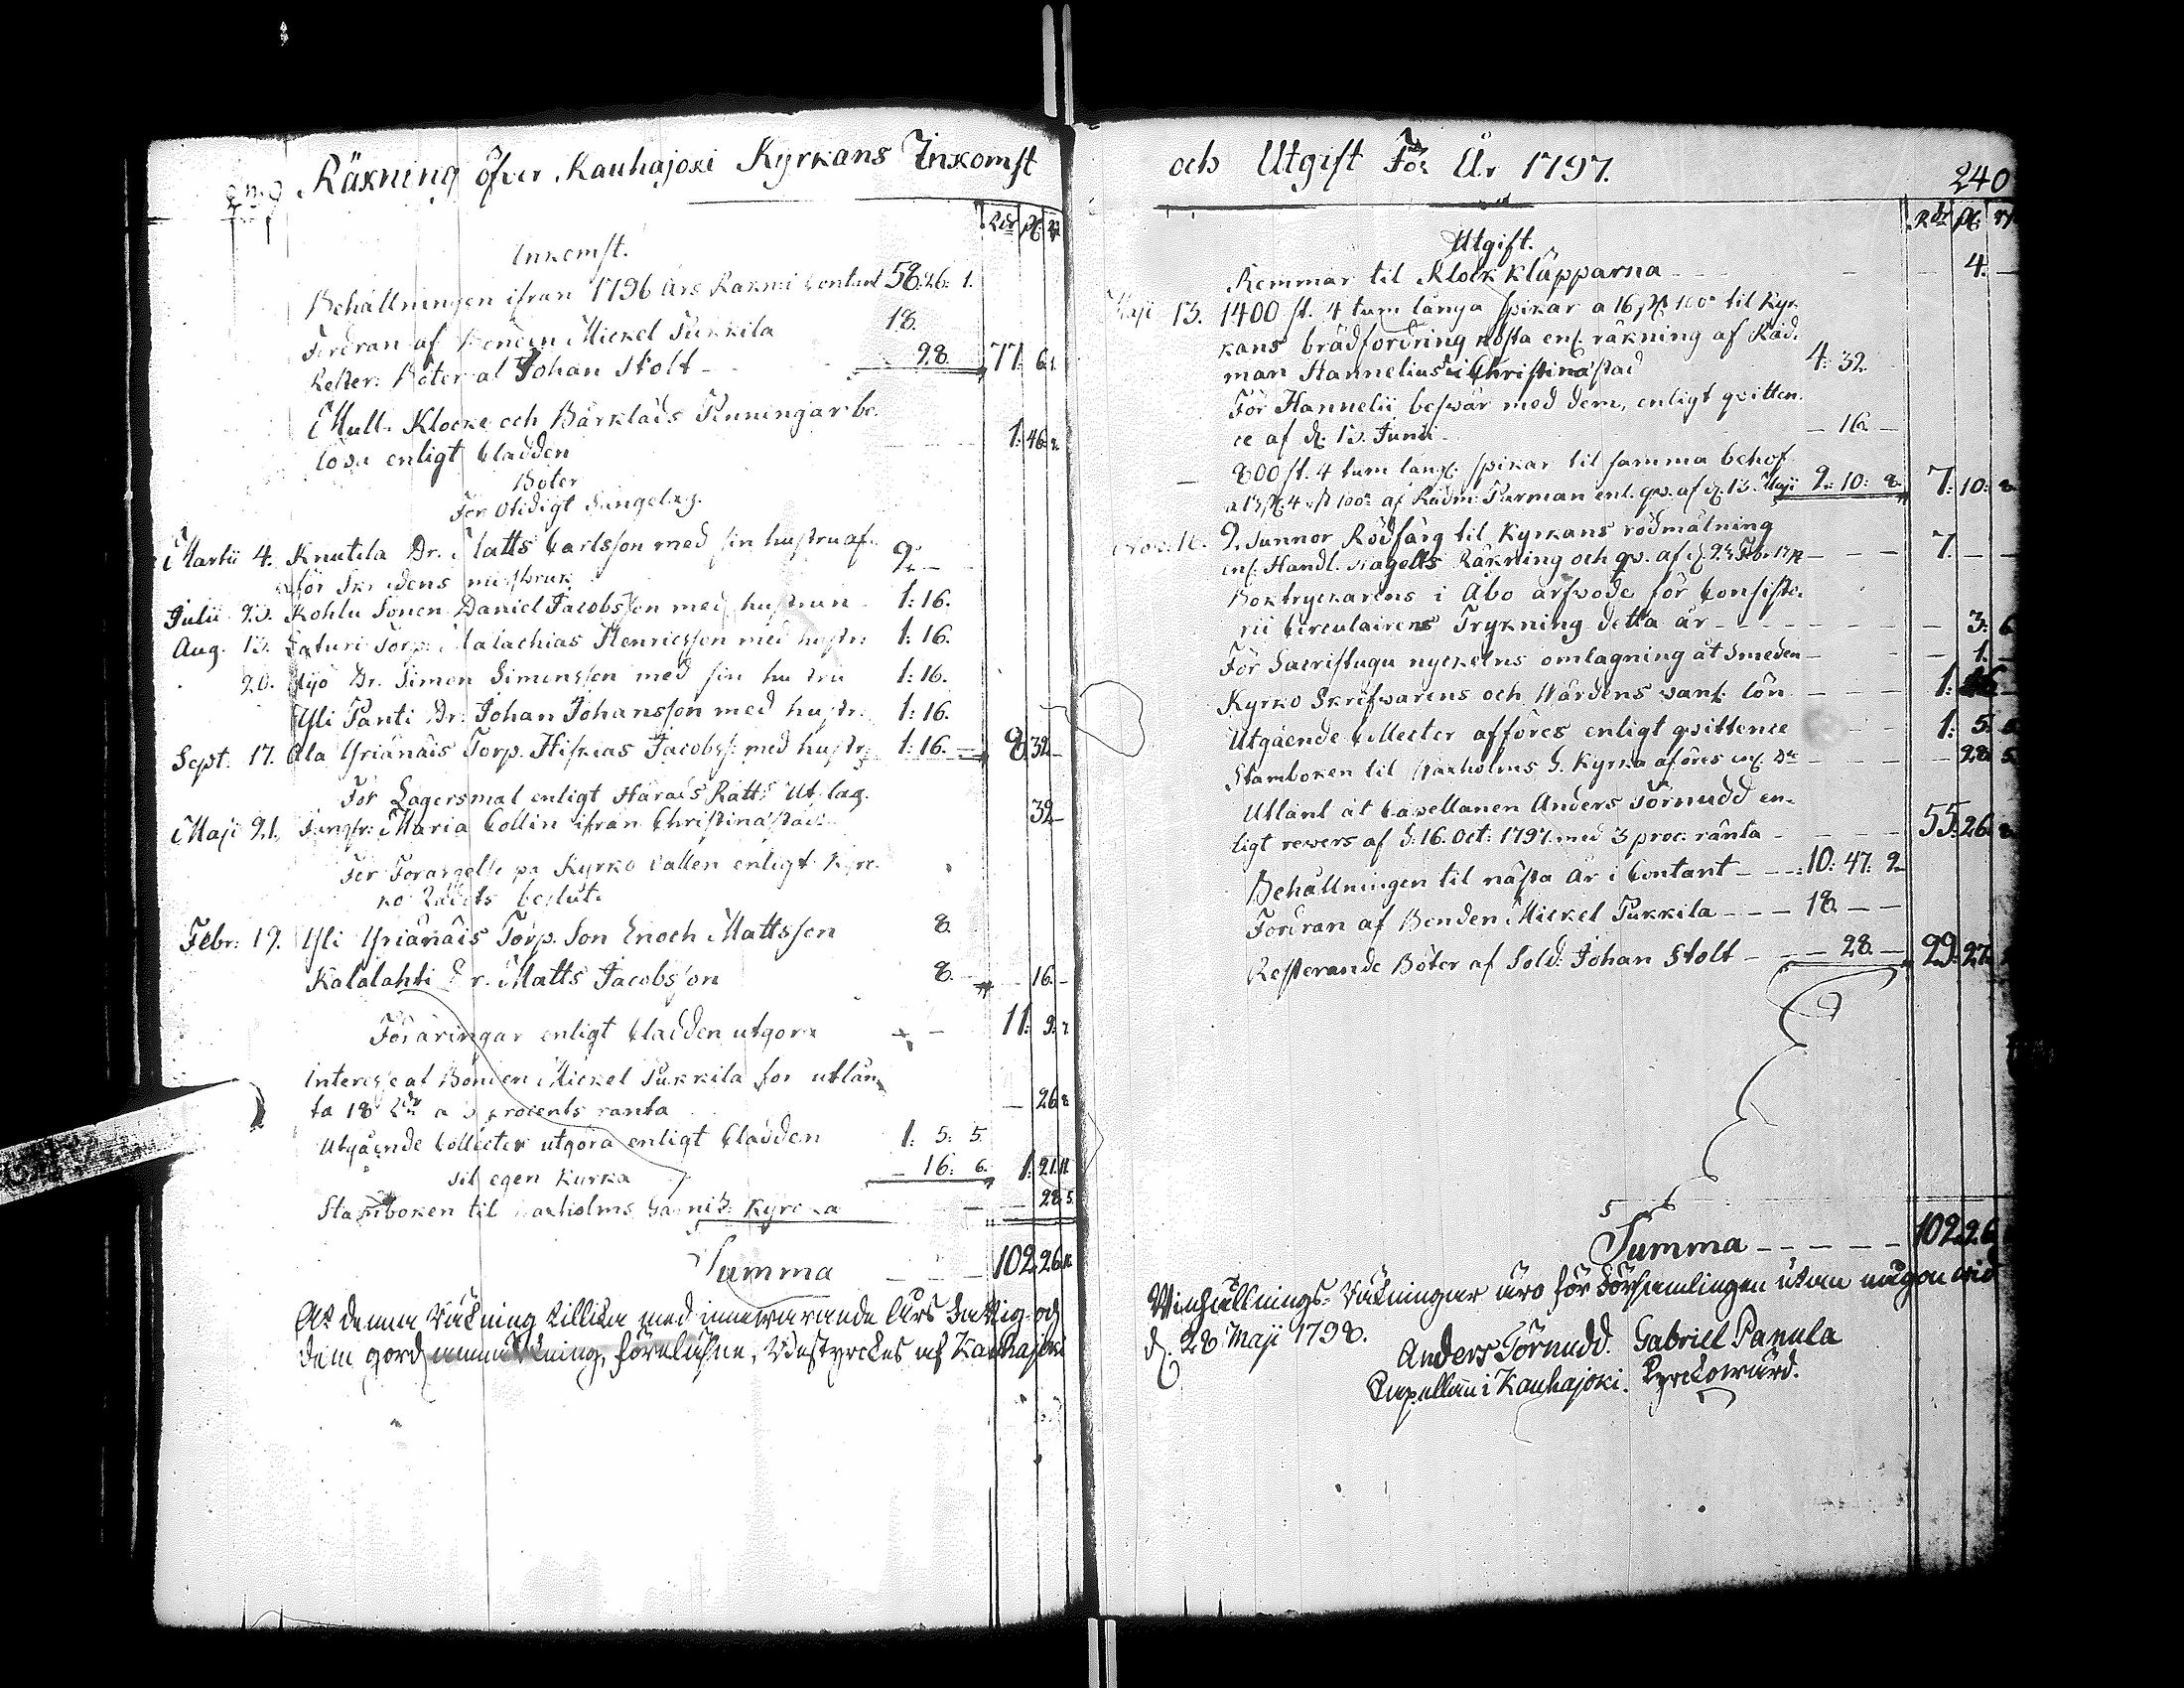 239 Räkning öfver Kauhajoki Kyrkans Inkomst
Rdr ſk rst
Inkomst.
Behållningen ifrån 1796 års Räkn: i Contant 58: 26: 1.
Fordran af Bonden Mickel Pukkila 18.
Rester: Böter af Johan Stolt - 28. 77: 6: 1.
Mull- Klocke och Bårkläds Penningar be-
löpa enligt Cladden 1: 46: 2.
Böter
För Otidigt Sängelag.
Martii 4. Knutila Dr. Matts Carlsson med sin hustru af-
för Skr edens missbruk 2. -
Julii 23. Kohlu Sonen Daniel Jacobsson med hustrun 1: 16.
Aug. 13. Saturi Torp: Malachias Henricsson med hustr: 1: 16.
20. Myö Dr. Simon Simonsson med sin hustru 1: 16.
Yli Panti Dr: Johan Johansson med hustr: 1: 16.
Sept. 17. Ala Yrjänäis Torp. Hiskias Jacobss: med hustr: 1: 16. 8. 32 -
För Lägersmål enligt Härads Rätts Utslag.
Maji 21. Jungfr: Maria Collin ifrån Christinæstad 32 -
För Förargelse på Kyrko vallen enligt Kyr-
ko Rådets beslut.
Febr: 19. Yli Yrjänäis Torp. Son Enoch Mattsson 8.
Kalalahti Dr. Matts Jacobsson 8. - 16. -
Föräringar enligt Cladden utgöra - 11: 9: 2
Interesse af Bonden Mickel Pukkila för utlån-
ta 18 Rdr a 3 procents ränta - 26 8
Utgående Collecter utgöra enligt Cladden 1: 5: 5.
til egen Kyrka - 16: 6. 1: 21 11
Stamboken til Waxholms Garnis: Kyrcka - - 28 5
Summa - - - 102. 26 11
At denna Räkning tillika med innevarande Års Fattig- och
dem gord anmärkning, föreläsne, Westyrckes af Kauhajoki
och Utgift För År 1797.
240
Rdr ſk rst
Utgift.
Remmar til Klock kläpparna - - - - 4. -
Maji 13. 1400 st. 4 tum långa spikar a 16 sk. 100de til Kyr-
kans brädfordring kosta enl. räkning af Råd-
man Hannelius i Christinæstad 4: 32
För Hannelii beswär med dem, enligt qvitten-
ce af d: 13. Junii - - 16. -
- 800 st. 4 tum lång: spikar til samma behof
a 13 sk. 4 rst 100de af Rådm: Purman enl. qv. af d: 13. Maji 2: 10: 8. 7: 10: 8
Nov. 16. 2. Tunnor Rödfärg til Kyrkans rödmålning
enl: Handl. Nagells Räkning och qv. af d. - - - 7. - -
Boktryckarens i Åbo arfwode för Consisto-
rii Circulairens Tryckning detta år - - - - - 3: 6
För Sacristugu nyckelns omlagning åt Smeden - - 1. -
Kyrko Skrifwarens och Wärdens wanl: lön - - - 1: 16
Utgående Collecter afföres enligt qvittence - - 1: 5: 5
Stamboken til Waxholms G. Kyrka aföres enl Dto - - - 28 5
Utlånt åt Capellanen Anders Törnudd en-
ligt rewers af d: 16. Oct: 1797. med 3 proc: ränta - - - 55: 26: 8
Behållningen til nästa år i Contant - - - : 10: 47: 2
Fordran af Bonden Mickel Pukkila - - - 18. - -
Resterande Böter af Sold: Johan Stolt - - - 28. - 29: 27:
Summa - - - - - 102. 26
Winhållnings- Räkningar äro för Församlingen utan någon wid
d. 28 Maji 1798.
Anders Törnudd. Gabriel Panula
Capellan i Kauhajoki. Kyrckowärd.